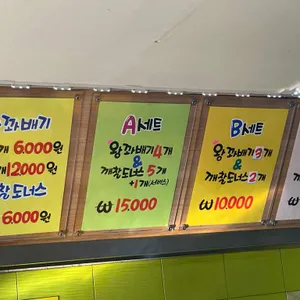 꽈배기
개 6.000원
개 12000원
찰도너스
6000원
A세트
왕꽈배기 4개
&
깨찰도너스 5개
+1개(서비스)
₩ 15.000
B세트
왕꽈배기 3개
&
깨찰도너스 2개
₩ 10.000